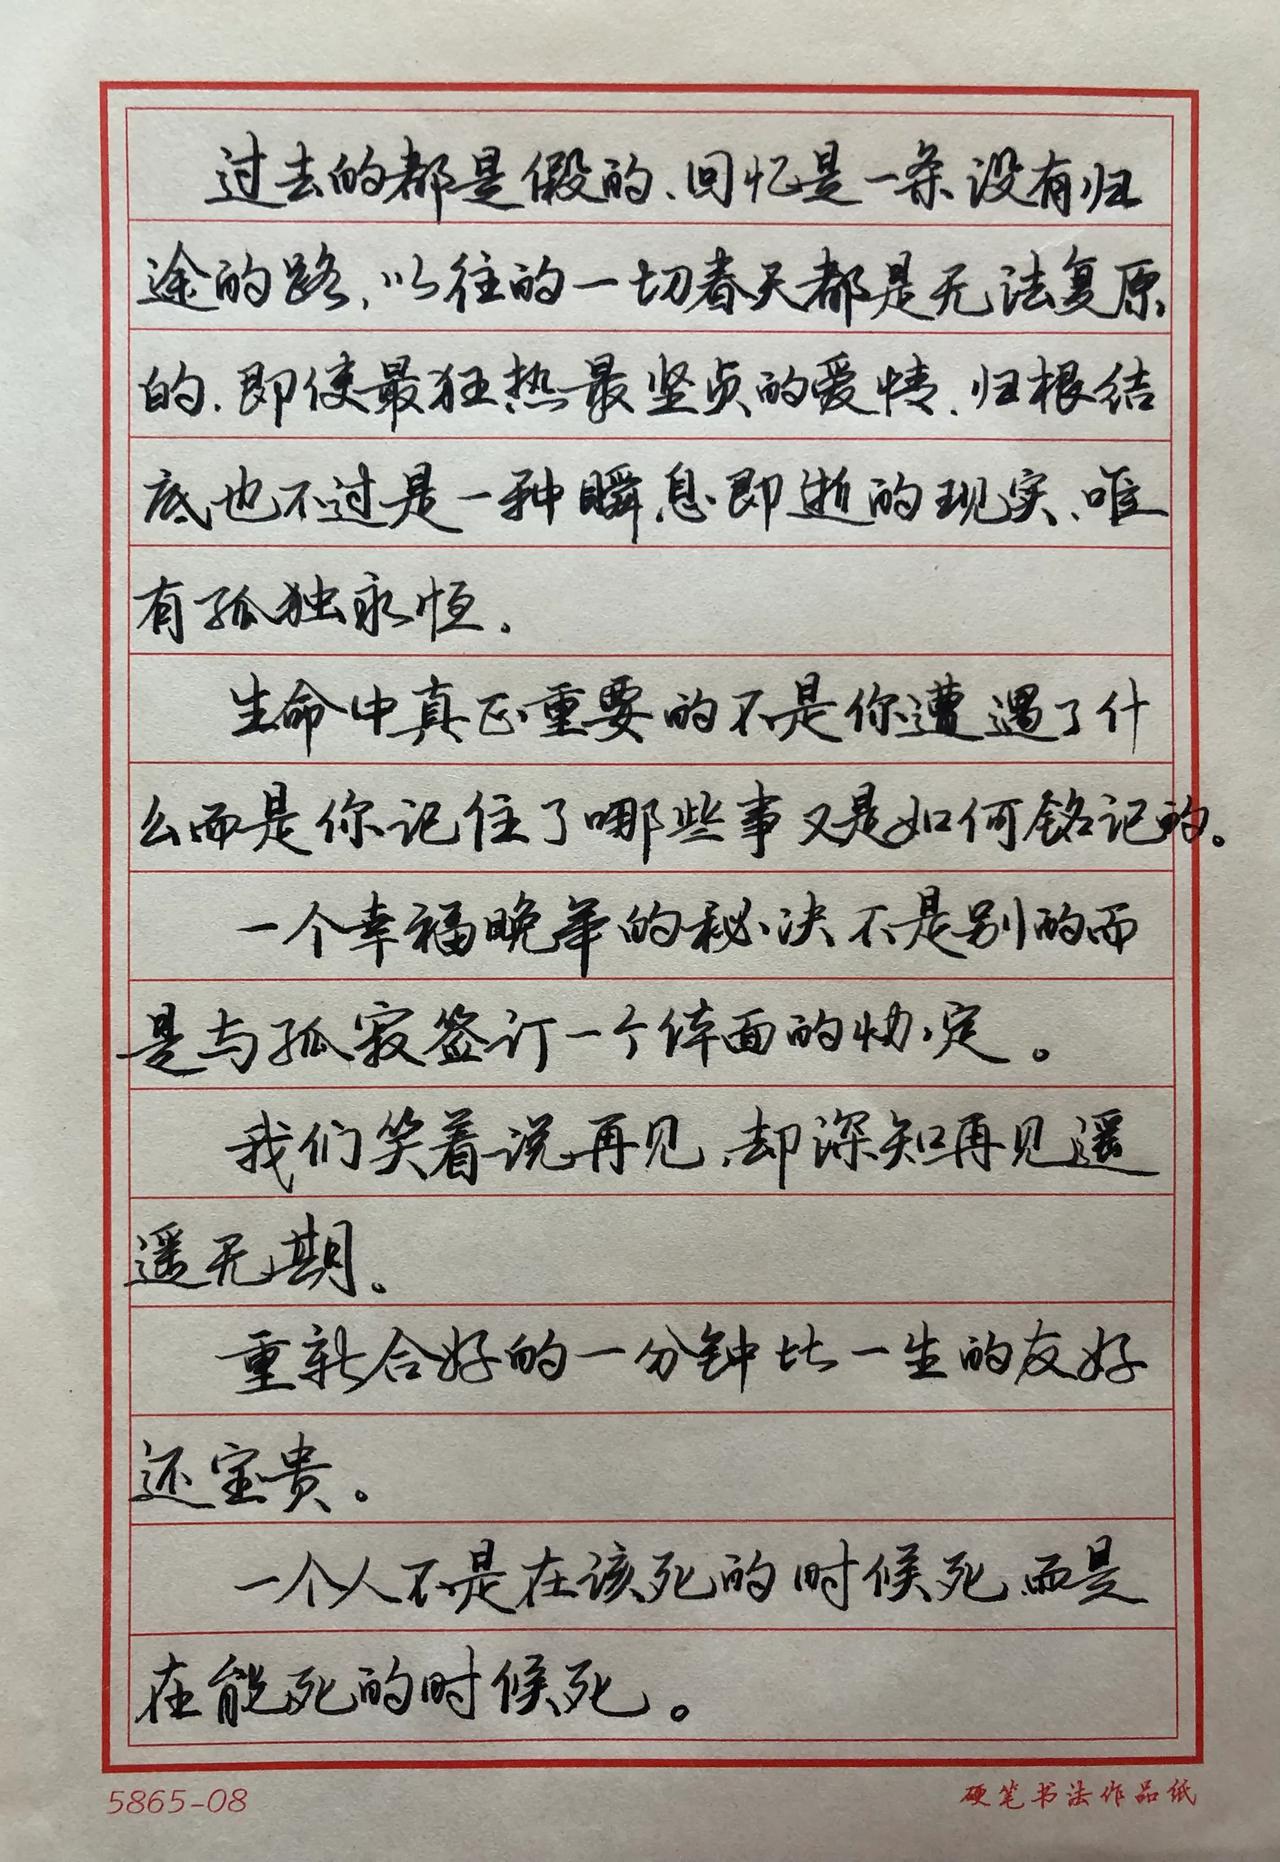 过去的都是假的、回忆是一条没有归
途的路，以往的一切春天都是无法复原
的，即使最狂热最坚贞的爱情，归根结
底也不过是一种瞬息即逝的现实、唯
有孤独永恒．
生命中真正重要的不是你遭遇了什
么而是你记住了哪些事又是如何铭记的。
一个幸福晚年的秘决不是别的而
是与孤寂签订一个体面的协定。
我们笑着说再见，却深知再见遥
遥无期。
重新合好的一分钟比一生的友好
还宝贵。
一个人不是在该死的时候死而是
在能死的时候死。
5865-08 硬笔书法作品纸